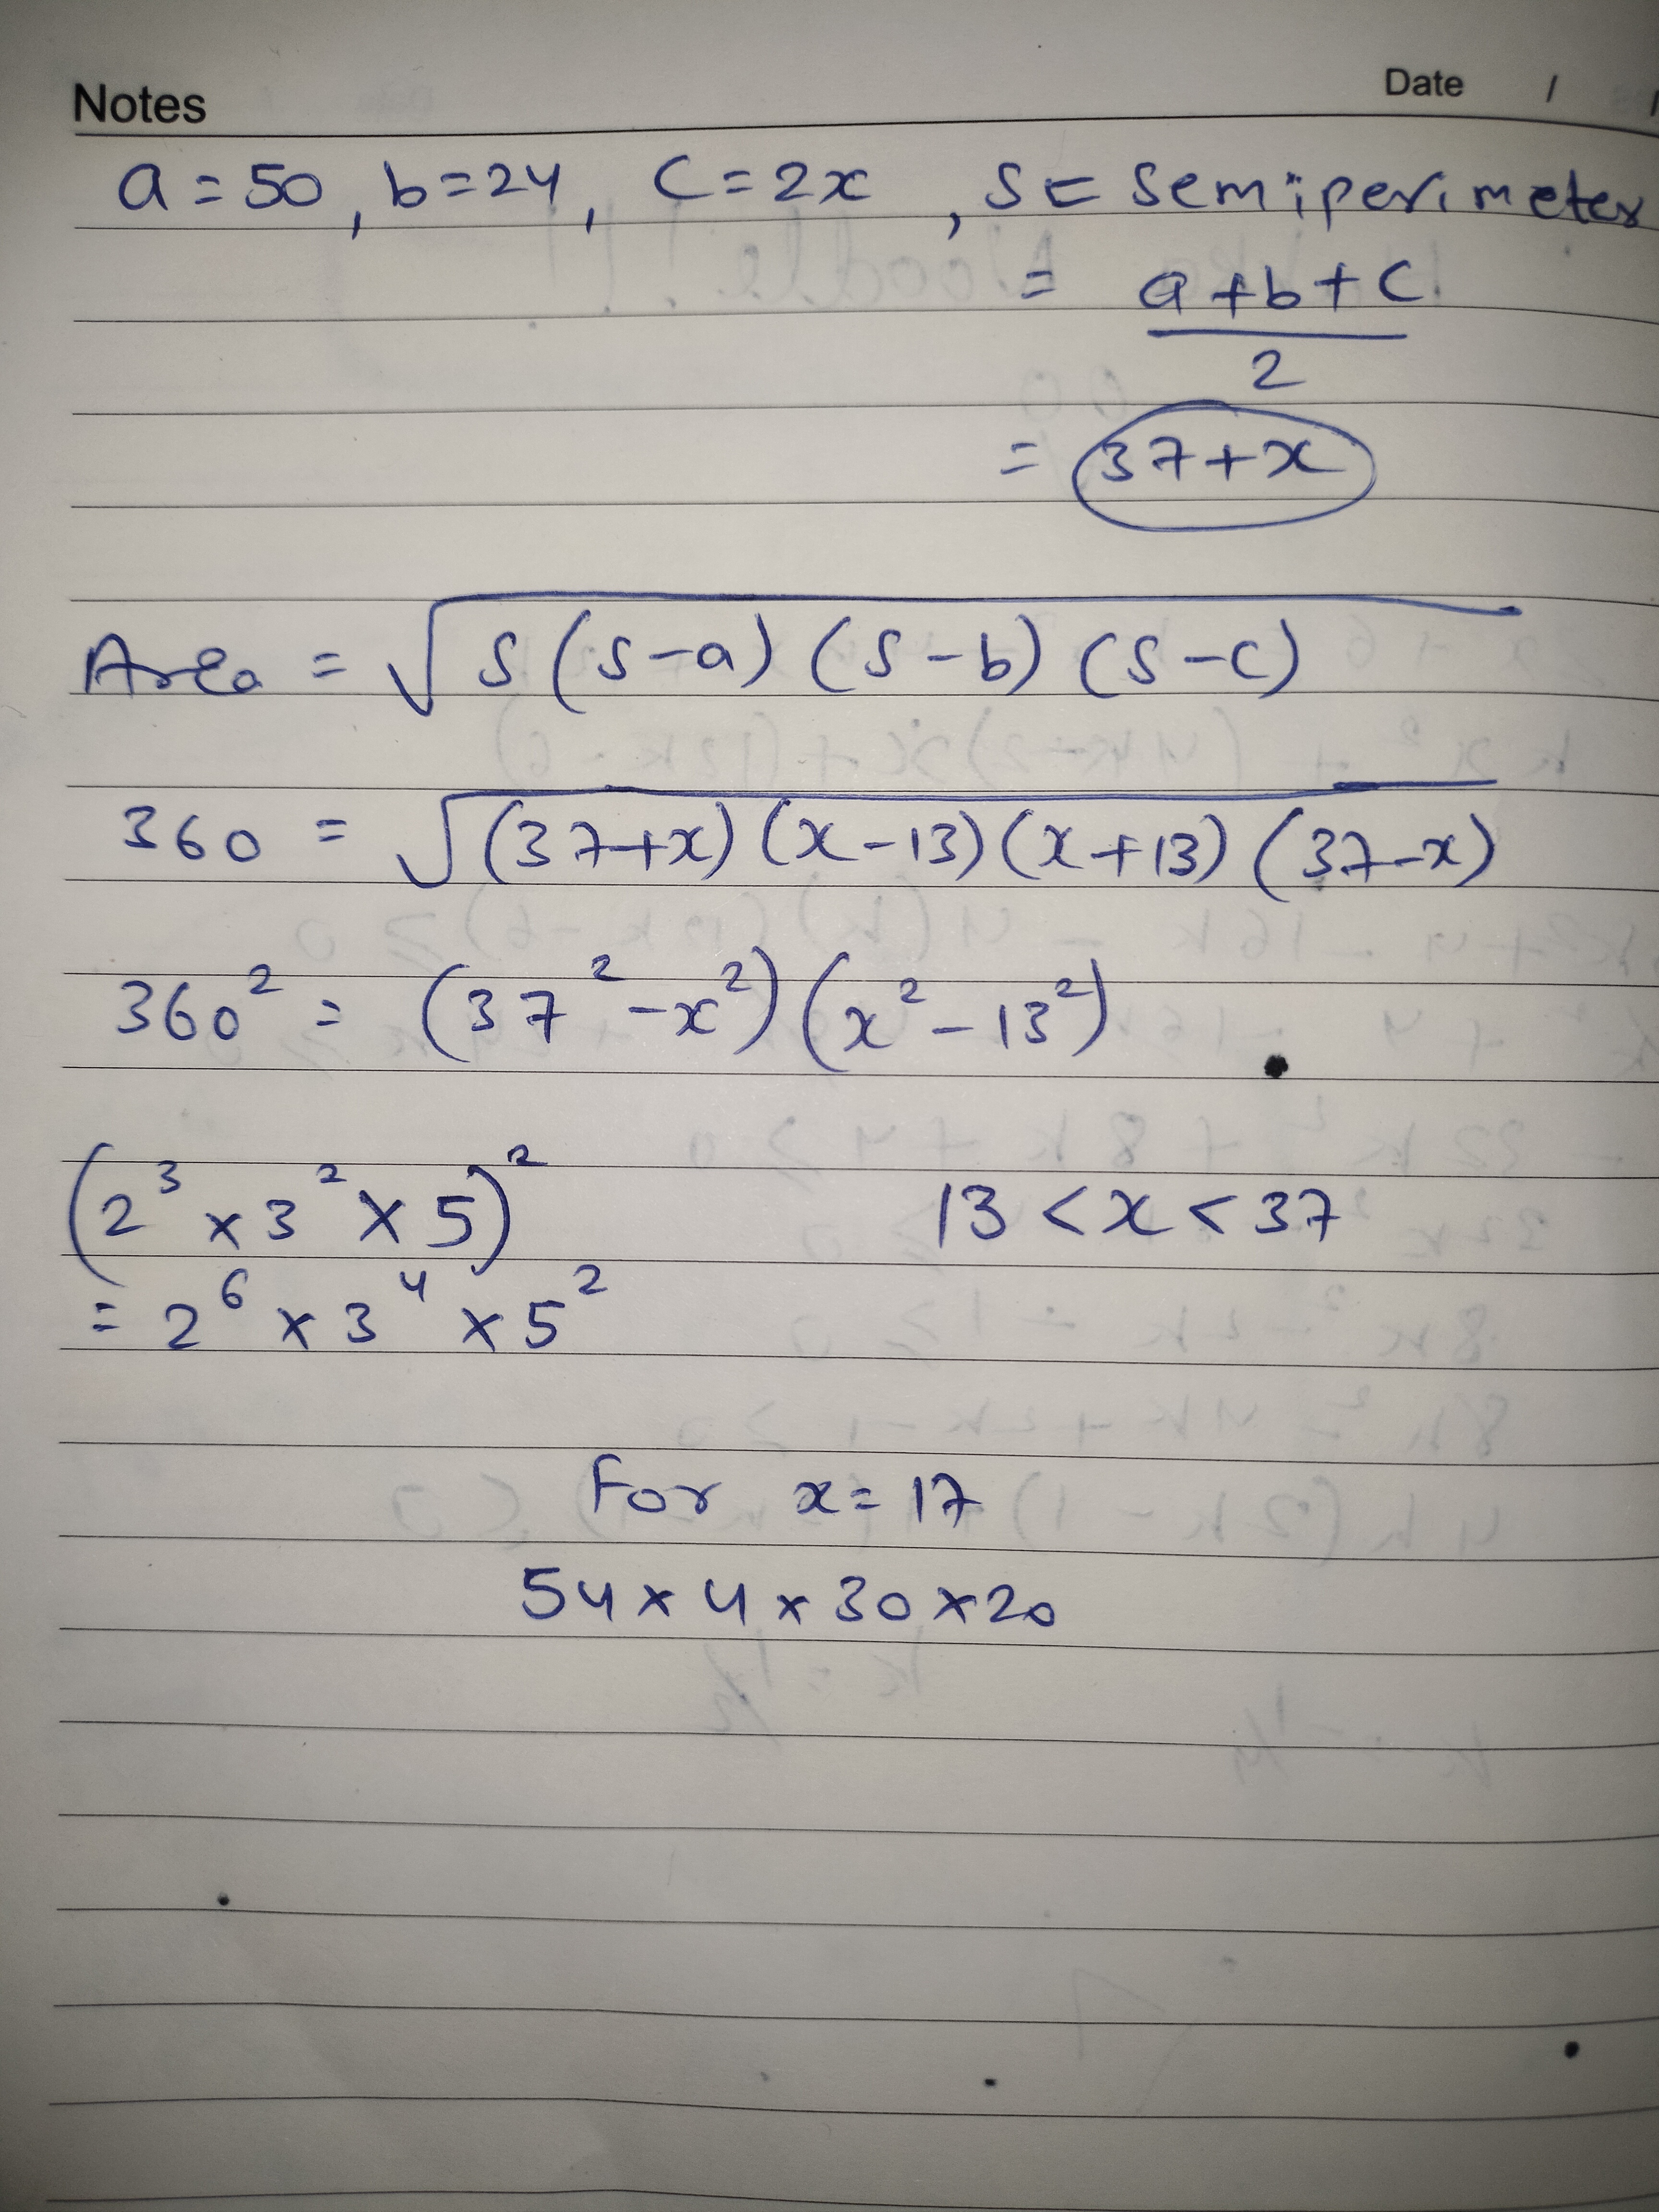 Notes Date / /
a = 50, b = 24, C = 2x, S = Semiperimeter
= a + b + C
2
= 37 + x
Area = √S (S - a) (S - b) (S - C)
360 = √(37+x) (x-13) (x+13) (37-x)
360² = (37² - x²) (x² - 13²)
(2³ × 3² × 5)² 13 < x < 37
= 2⁶ × 3⁴ × 5²
For x = 17
54 × 4 × 30 × 20